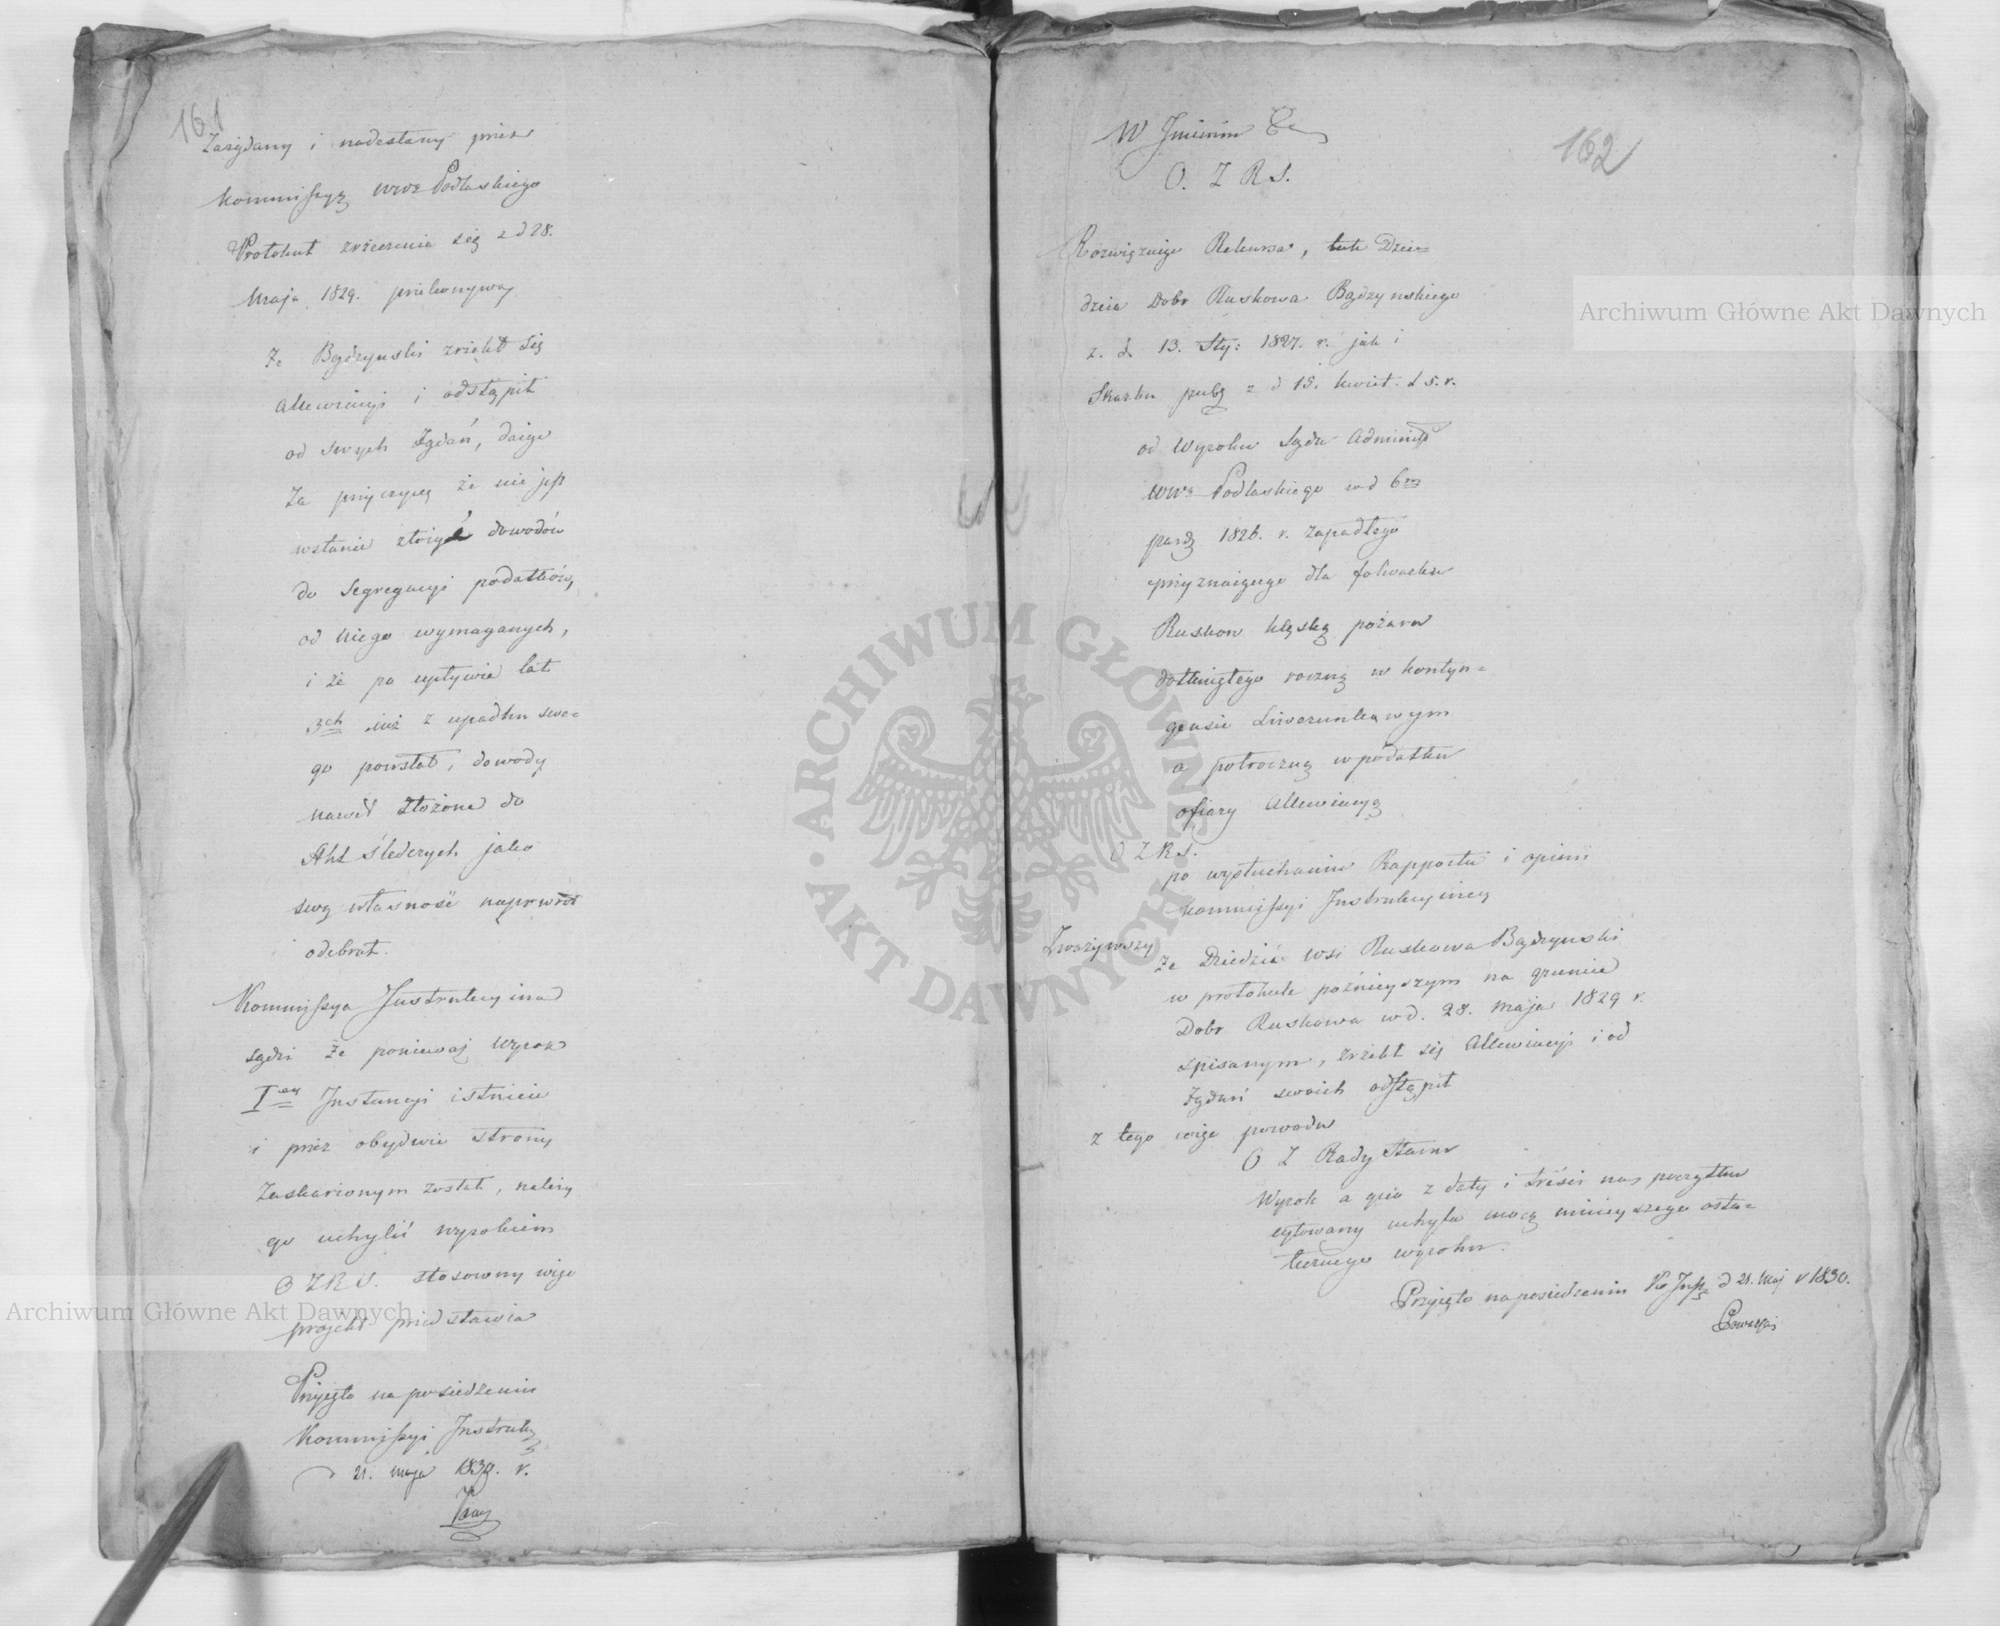 161
Zażądany i nadesłany przez
Kommissyą Wwa Podlaskiego
Protokuł zrzeczenia się z d 28.
Maja 1829. przekonywa,
Że Bądzynski zrzekł się
Allewiacyi i odstąpił
od swych Żądań, daiąc
Za przyczynę że nie jest
wstanie złożyć dowodów
do Segregacyi podatków,
od niego wymaganych,
i że po upływie lat
3ch już z upadku swe=
go powstał, dowody
nawet złożone do
Akt śledczych jako
swą własność napowrót
odebrał.
Kommissya Instrukcyina
sądzi że ponieważ Wyrok
Iey Instancyi istnieie
i przez obydwie strony
Zaskarżonym został, należy
go uchylić wyrokiem
O Z R S. stosowny więc
projekt przedstawia
Przyjęto na posiedzeniu
Kommissyi Instrukc
d 21. Maja 1830. r.
162
W Jmieniu
O. Z R S.
Rozwiązuiąc Rekursa, tak Dzie=
dzica Dobr Ruskowa Bądzynskiego
z. d. 13. Sty: 1827. r. jak i
Skarbu publ z d 15. kwiet. t. s. r.
od Wyroku Sądu Administ
Wwa Podlaskiego w d 6m
pazdz 1826. r. zapadłego
przyznaiącego dla folwarku
Ruskow klęską pożaru
dotkniętego roczną w kontyn=
gensie Liwerunkowym
a połroczną w podatku
ofiary Allewiacyą
O Z R S.
po wysłuchaniu Rapportu i opinii
Kommissyi Instrukcyiney
Zważywszy
że Dziedzic wsi Ruskowa Bądzynski
w protokule późnieyszym na gruncie
Dobr Ruskowa w d. 28. Maja 1829 r.
spisanym, zrzekł się Allewiacyi i od
żądań swoich odstąpił
z tego więc powodu
O Z Rady Stanu
Wyrok a quo z daty i treści na początku
cytowany uchyla mocą ninieyszego osta=
tecznego wyroku.
Przyięto na posiedzeniu Ko Inst d 21. Maj r 1830.
Archiwum Główne Akt Dawnych
Archiwum Główne Akt Dawnych
ARCHIWUM GŁÓWNE AKT DAWNYCH